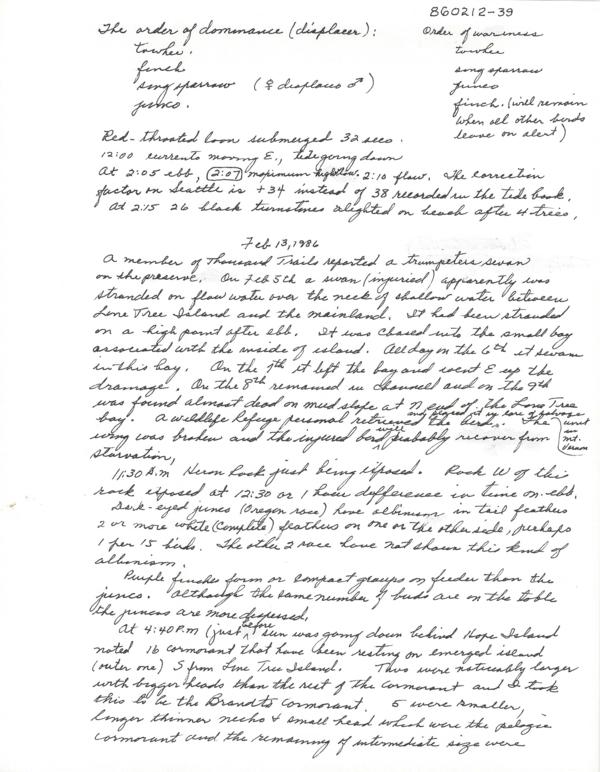 860212-39
The order of dominance (displacer):
towhee.
finch
song sparrow (♀ displaces ♂)
junco.
Order of wariness
towhee
song sparrow
junco
finch. (will remain
when all other birds
leave on alert)
Red-throated loon submerged 32 secs.
12:00 currents moving E., tide going down
At 2:05 ebb, 2:07 maximum 2:10 flow. The correction
factor on Seattle is +34 instead of 38 recorded in the tide book.
At 2:15 26 black turnstones alighted on beach after 4 tries.
Feb 13, 1986
A member of Thousand Trails reported a trumpeters swan
on the preserve. On Feb 5th a swan (injuried) apparently was
stranded on flow water over the neck of shallow water between
Lone Tree Island and the mainland. It had been stranded
on a high point after ebb. It was chased into the small bay
associated with the inside of island. All day on the 6th it swam
in this bay. On the 7th it left the bay and went E up the
drainage. On the 8th remained in channell and on the 9th
was found almost dead on mud slope at N end of the Lone Tree
bay. A wildlife Refuge personal retrieved the bird and placed it in care of salvage unit in Mt. Vernon. The
wing was broken and the injured bird will probably recover from
starvation,
11:30 A.m Heron Rock just being exposed. Rock W of this
rock exposed at 12:30 or 1 hour difference in time on ebb.
Dark-eyed junco (Oregon race) have albinism in tail feathers
2 or more white (complete) feathers on one or the other side, perhaps
1 per 15 birds. The other 2 race have not shown this kind of
albinism.
Purple finches form or compact groups on feeder than the
junco. Although the same number of birds are on the table
the juncos are more dispersed,
At 4:40 P.m (just before sun was going down behind Hope Island
noted 16 cormorant that have been resting on emerged island
(outer one) S from Lone Tree Island. Two were noticeably larger
with bigger heads than the rest of the cormorant and I took
this to be the Brandts cormorant. 5 were smaller,
longer thinner necks & small head which were the pelagic
cormorant and the remaining of intermediate size were